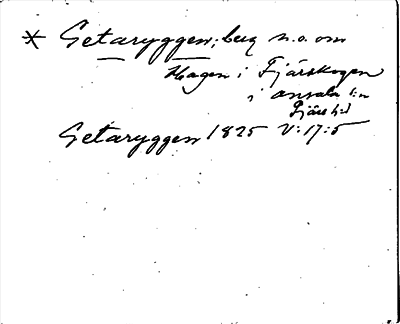 * Getaryggen, berg n.o. om
Hagen i Fjärskogen
i Onsala s:n
Fjäre h:d
Getaryggen 1825 V:17:5